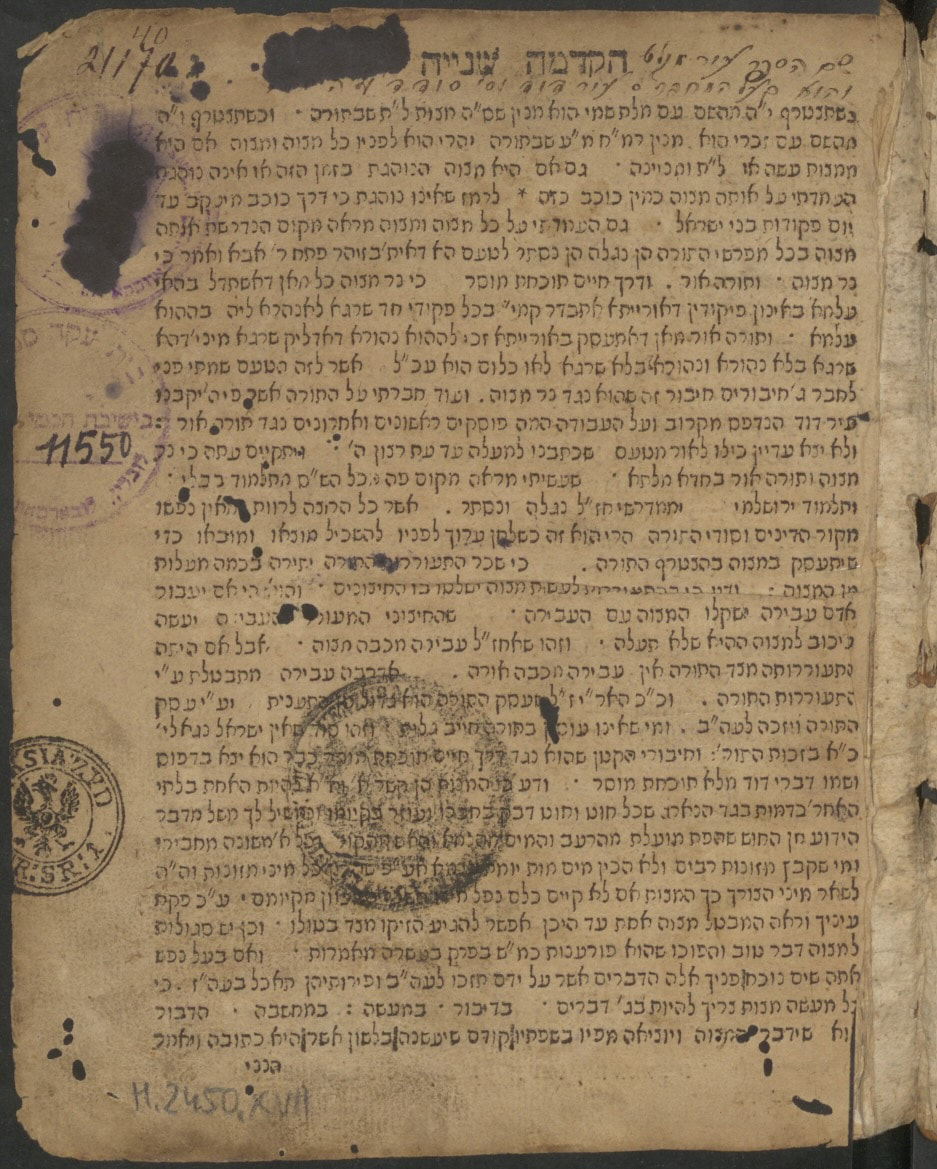 40
21170
שם הספר
הקדמה שנייה
כשתצטרף י"ה מהשם עם מלת שמי הוא מנין שס"ה מצות ל"ת שבתורה · וכשתצטרף ו"ה
מהשם עם זכרי הוא מנין רמ"ח מ"ע שבתורה והרי הוא לפניו כל מצוה ומצוה אם היא
ממצות עשה או ל"ת ומניינה · גם אם היא מצוה הנוהגת בזמן הזה או אינה נוהגת
העמדתי על אותה מצוה כמין כוכב כזה * לרמז שאינו נוהגת כי דרך כוכב מיעקב עד
יום פקודות בני ישראל · גם העמדתי על כל מצוה ומצוה מראה מקום הנדרשת אותה
מצוה בכל מפרשי התורה הן נגלה הן נסתר לטעם הא דאית' בזוהר פתח ר' אבא ואמר כי
נר מצוה · ותורה אור · ודרך חיים תוכחת מוסר כי נר מצוה כל מאן דאשתדל בהאי
עלמא באינון פיקודין דאורייתא אתסדר קמי' בכל פקודי חד שרגא לאנהרא ליה בההוא
עלמא · ותורה אור מאן דאתעסק באורייתא זכי לההוא נהורא דאדליק שרגא מיני' דהא
שרגא בלא נהורא ונהורא בלא שרגא לאו כלום הוא עכ"ל אשר לזה הטעם שמתי פני
לחבר ג' חיבורים חיבור זה שהוא נגד נר מצוה · ועוד חברתי על התורה אשר
דוד הנדפס מקרוב ועל העבודה המה פוסקים ראשונים ואחרונים נגד תורה אור ·
ולא יצא עדיין כולו לאור מטעם שכתבנו למעלה עד עת רצון ה' · ויתקיים עתה כי נר
מצוה ותורה אור בחדא מלתא · שעשיתי מראה מקום פה מכל הש"ס מתלמוד בבלי ·
ותלמוד ירושלמי וממדרשי חז"ל נגלה ונסתר · אשר כל הרוצה לרוות צמאון נפשו
מקור הדינים וסודי התורה הרי הוא זה כשלחן ערוך לפניו להשכיל מוצאו ומובאו כדי
שיתעסק במצוה בהצטרף התורה · כי שכר התעוררות התורה יתירה בכמה מעלות
מן המצוה · לעשות מצוה ישלטו בו החיצונים · אם יעבור
אדם עבירה ישקלו המצוה עם העבירה · שהחיצוני יעשה
עיכוב למצוה ההיא שלא תעלה · וזהו שאחז"ל עבירה מכבה מצוה · אבל אם היתה
התעוררותה מצד התורה אין עבירה מכבה אורה · אדרבה עבירה מתבטלת ע"י
התעוררות התורה · וכ"כ האר"י ז"ל שעסק התורה הוא וע"י עסק
התורה יזכה לעה"ב · ומי שאינו עוסק בתורה חייב שאין ישראל נגאלי'
כ"א בזכות התור': וחיבורי הקטן שהוא נגד דרך חיים תוכחת מוסר כבר הוא יצא בדפוס
ושמו דברי דוד מלא תוכחת מוסר · ודע כי המצות הן האחת בלתי
האחר' כדמות בגד הנארג שכל חוט וחוט דבק בחברו ונעזר בקיומו ואמשיל לך משל מדבר
הידוע מן החוש שהפת תועלת מהרעב והמים מהצמא והאש מהקור
ומי שקבץ מזונות רבים ולא הכין מים מות ימות מיני מזונות וה"ה
לשאר מיני הצורך כך המצות אם לא קיים כלם נפל מקיומם · ע"כ פקח
עיניך וראה המבטל מצוה אחת עד היכן אפשר להגיע הזיקו מצד בטולו · וכן יש סגולות
למצוה דבר טוב והפוכו שהוא פורענות כמ"ש בפרק בעשרה מאמרות · ואם בעל נפש
אתה שים נוכח פניך אלה הדברים אשר על ידם תזכו לעה"ב ופירותיהן תאכל בעה"ז · כי
כל מעשה מצות צריך להיות בג' דברים · בדיבור · במעשה : במחשבה · הדבור
הוא שידבר המצוה ויוציאה מפיו בשפתיו קודם שיעשנה בלשון אשר היא כתובה ויאמר
הנני
11550
H.2450.XVIII